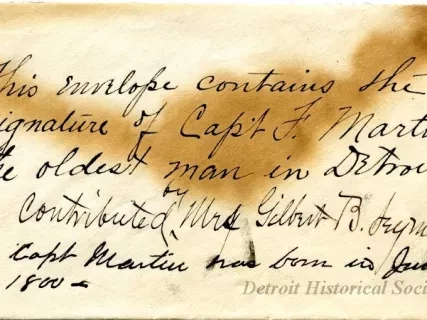 This Envelope contains the
signature of Capt F. Marti
the oldest man in Detroi
Contributed by Mrs Gilbert B. Seym
Capt Martin was born in Jun
1800 -
Detroit Historical Soci